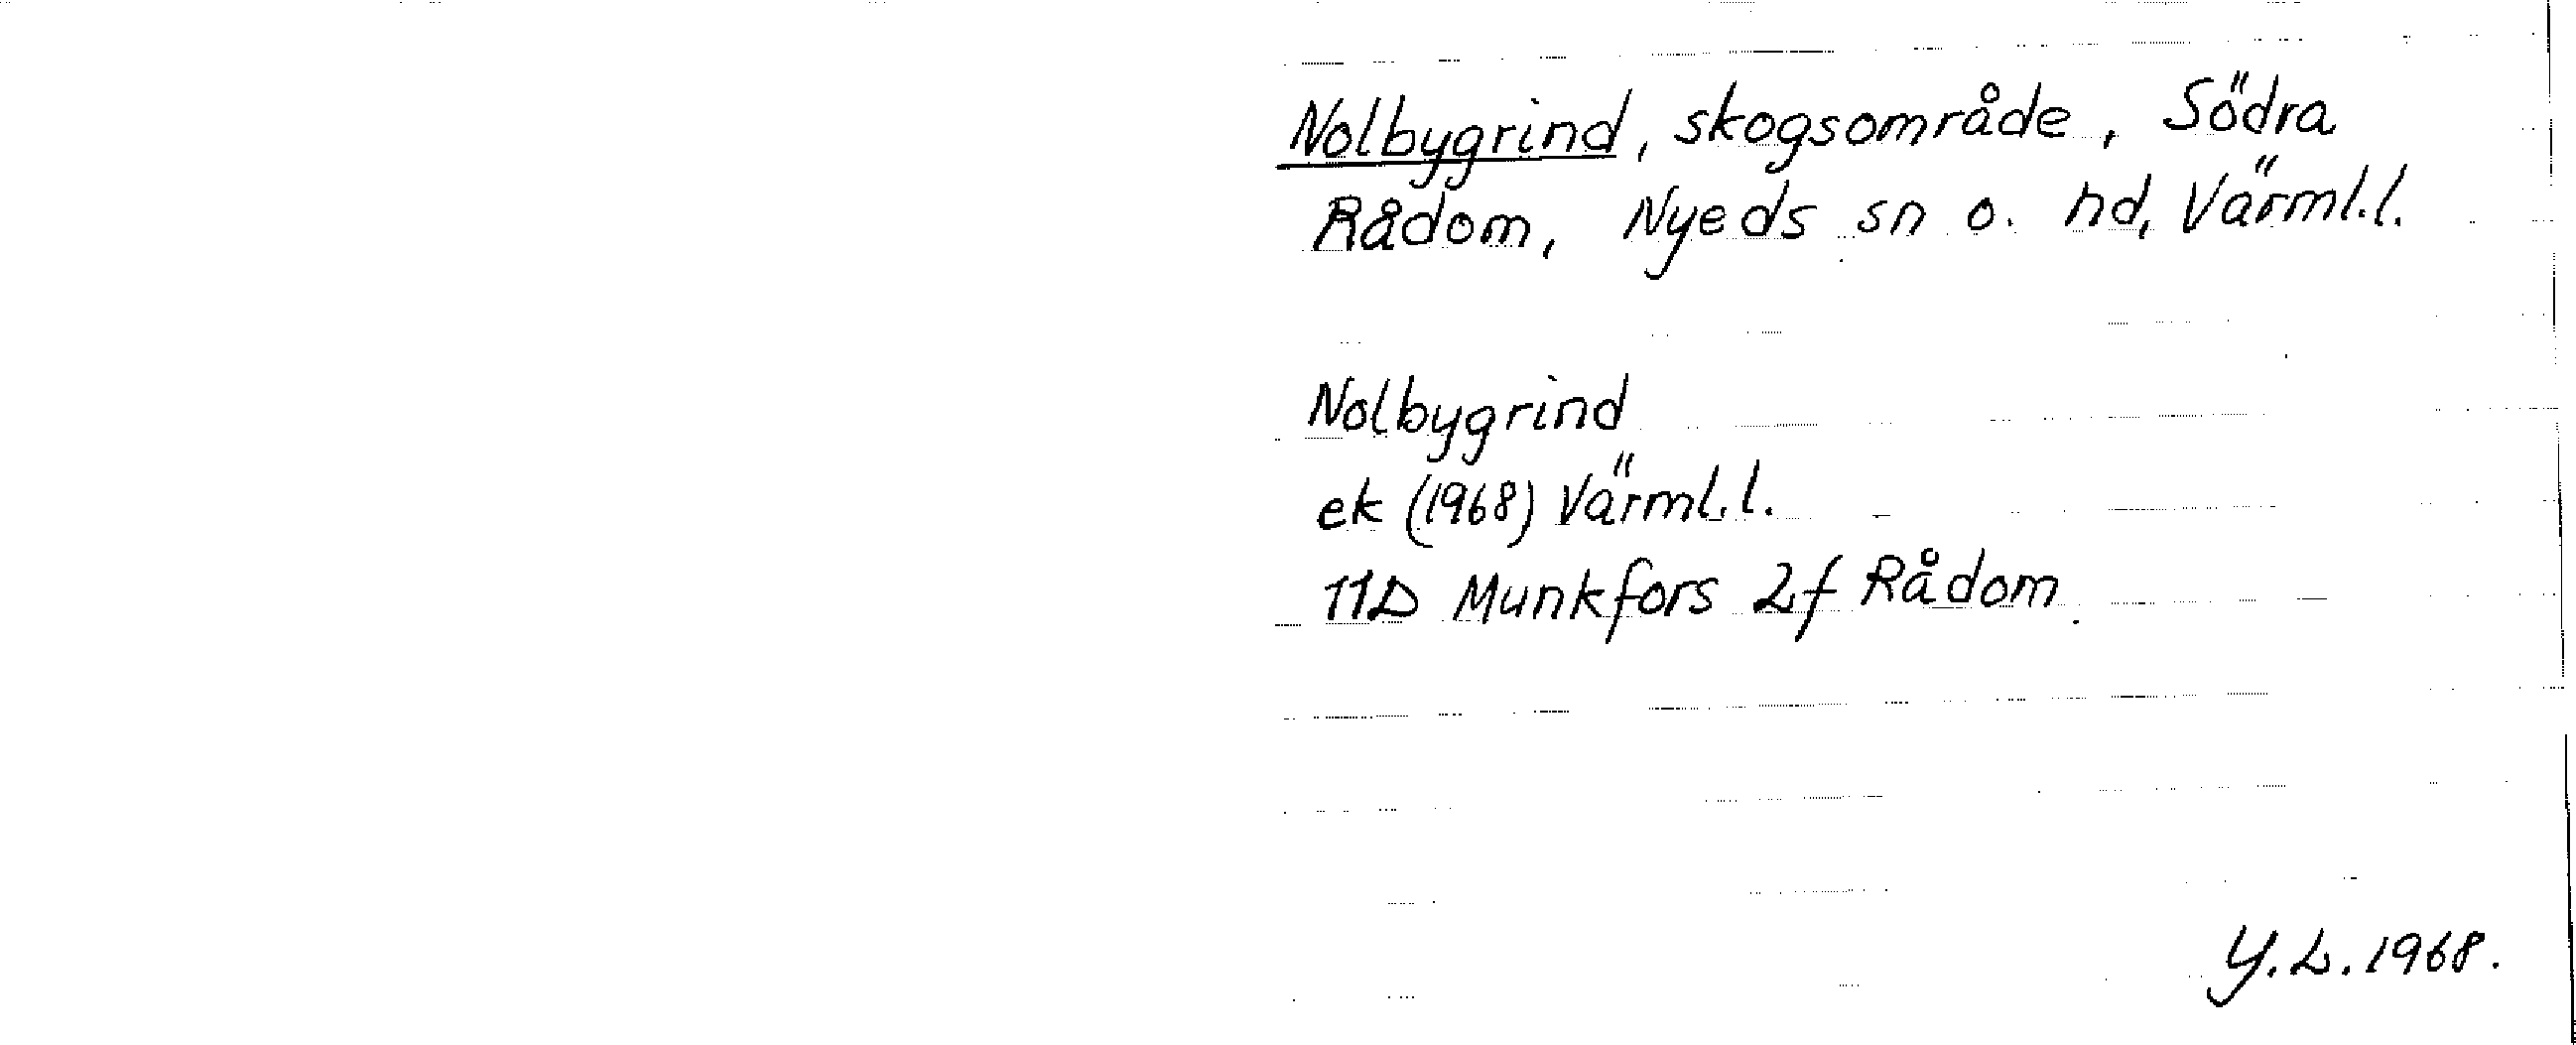 Nolbygrind, skogsområde, Södra
Rådom, Nyeds sn o. hd, Värml.l.
Nolbygrind
ek (1968) Värml.l.
11D Munkfors 2f Rådom
Y.L. 1968.